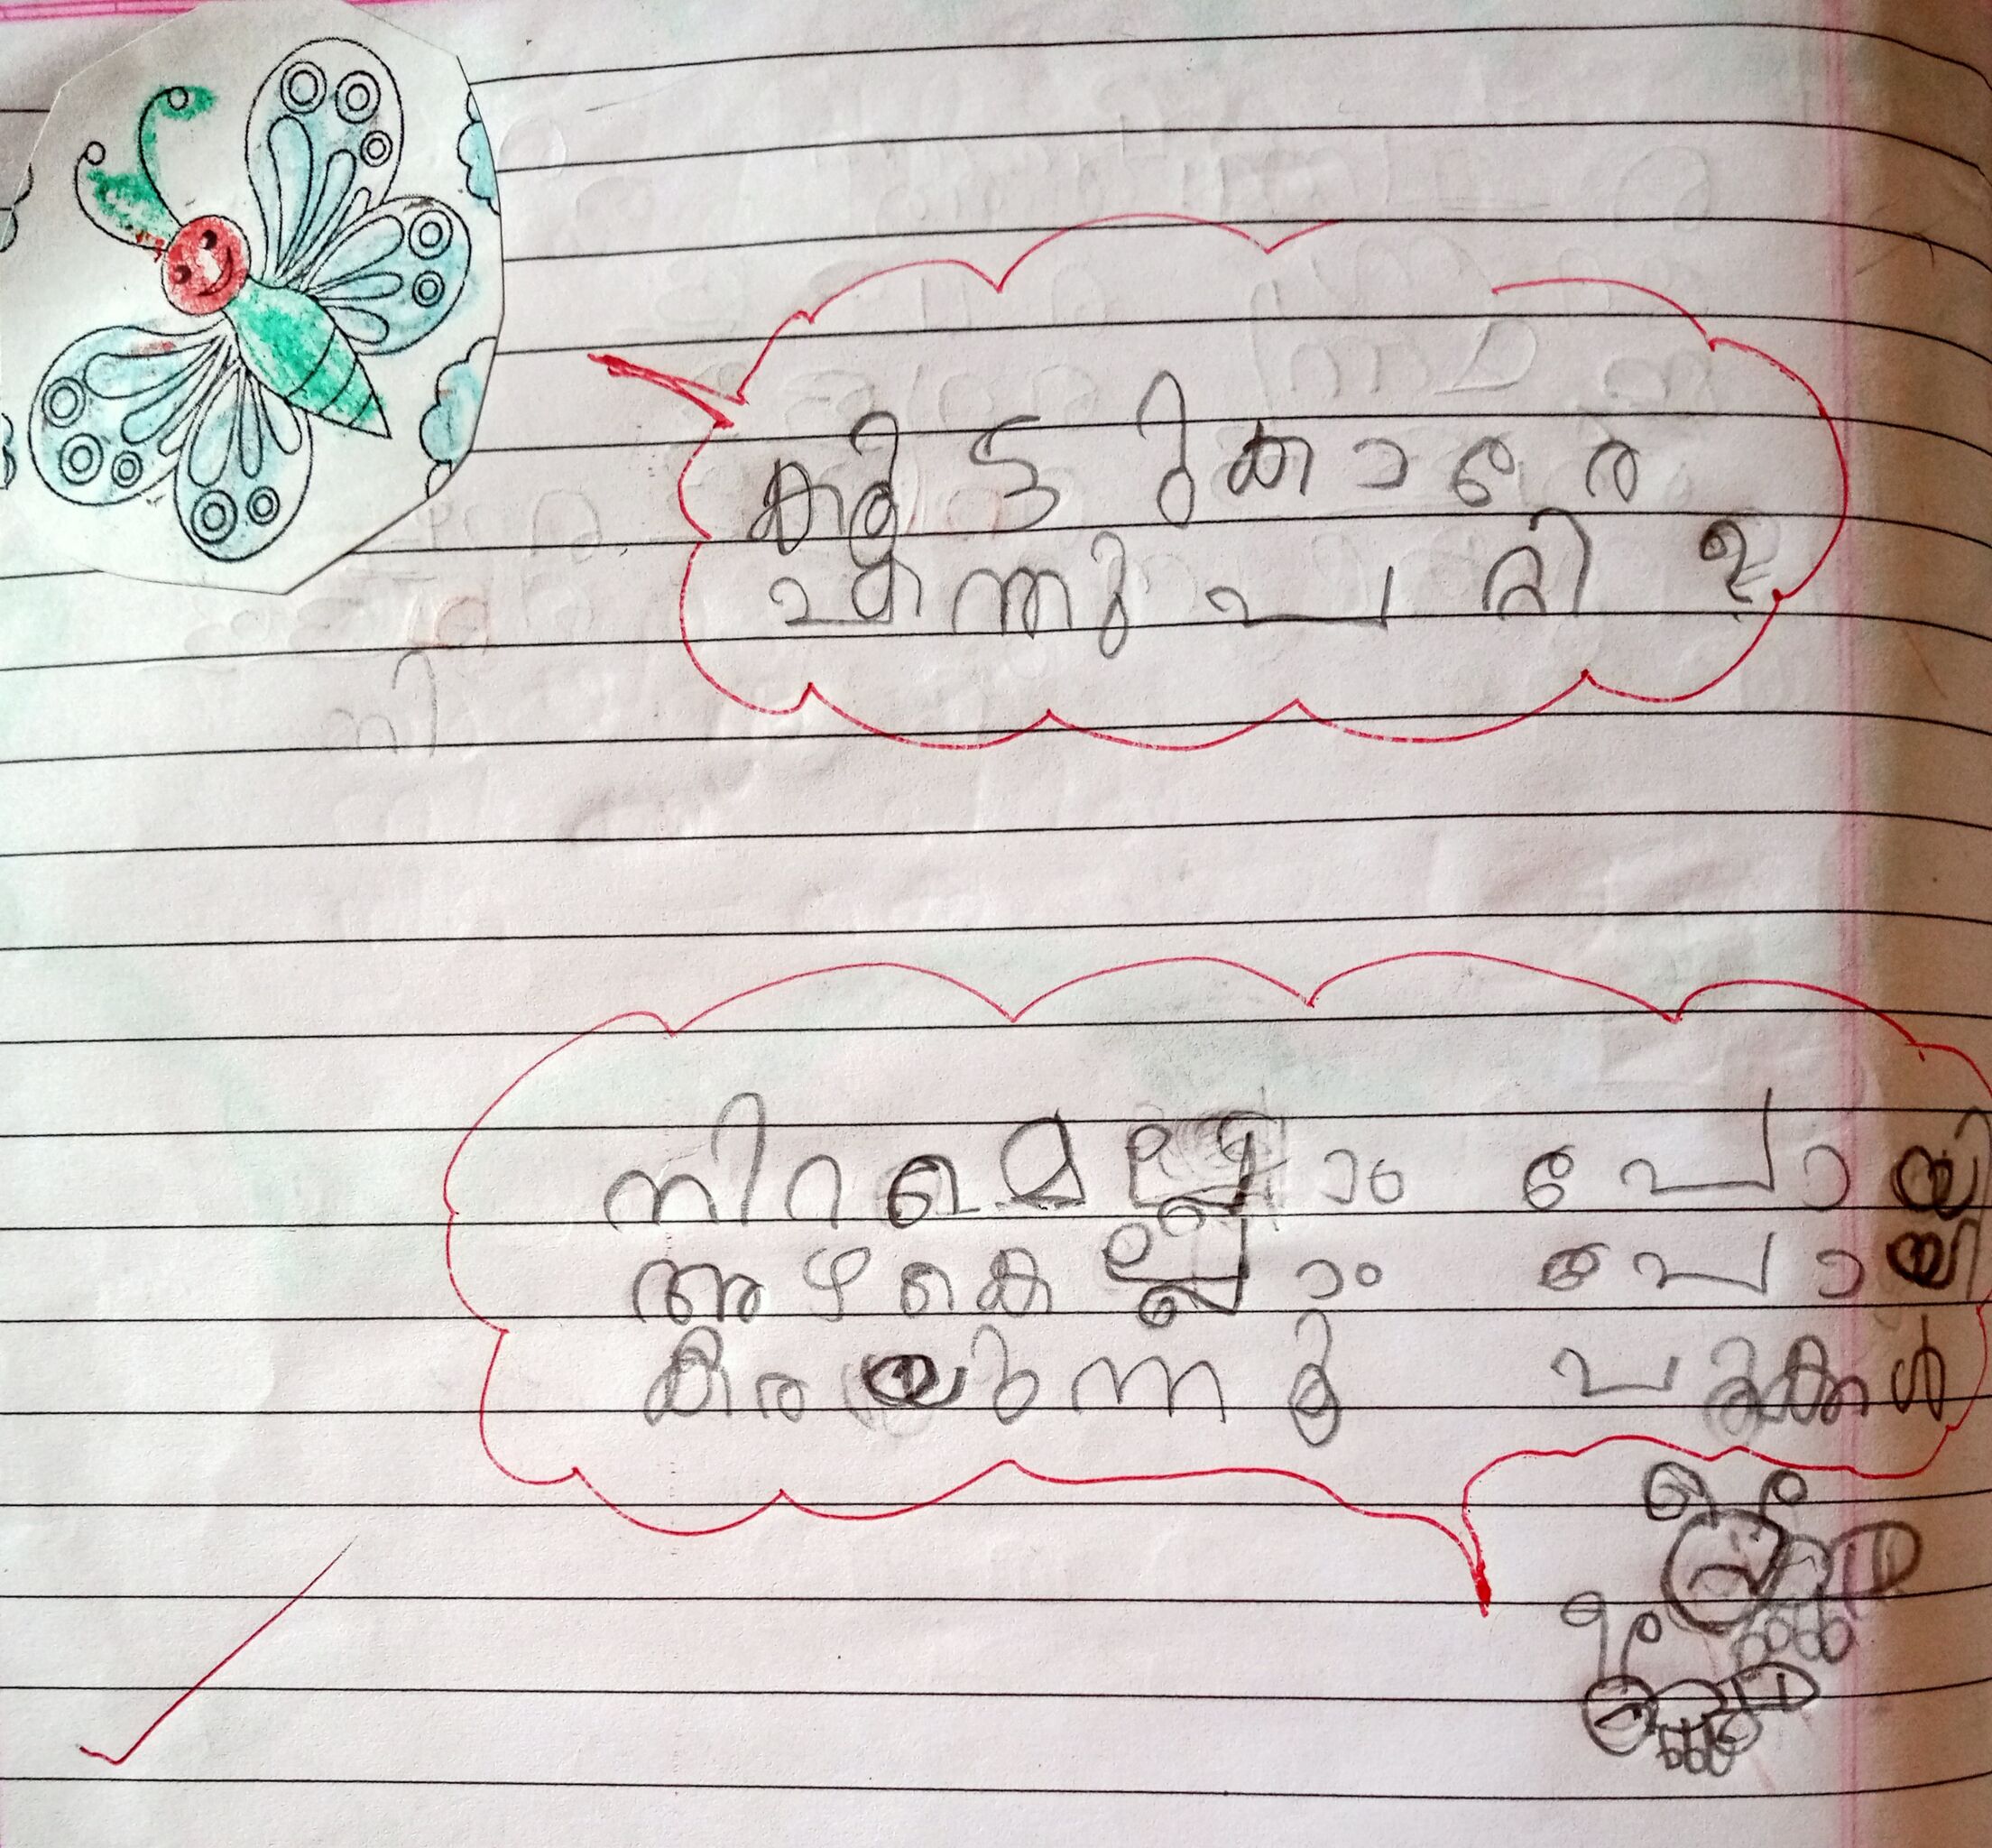 കൂട്ടുകാരേ
എന്തു പറ്റി ?
നിറമെല്ലാം പോയി
അഴകെല്ലാം പോയി
കരയുന്നു പൂക്കൾ